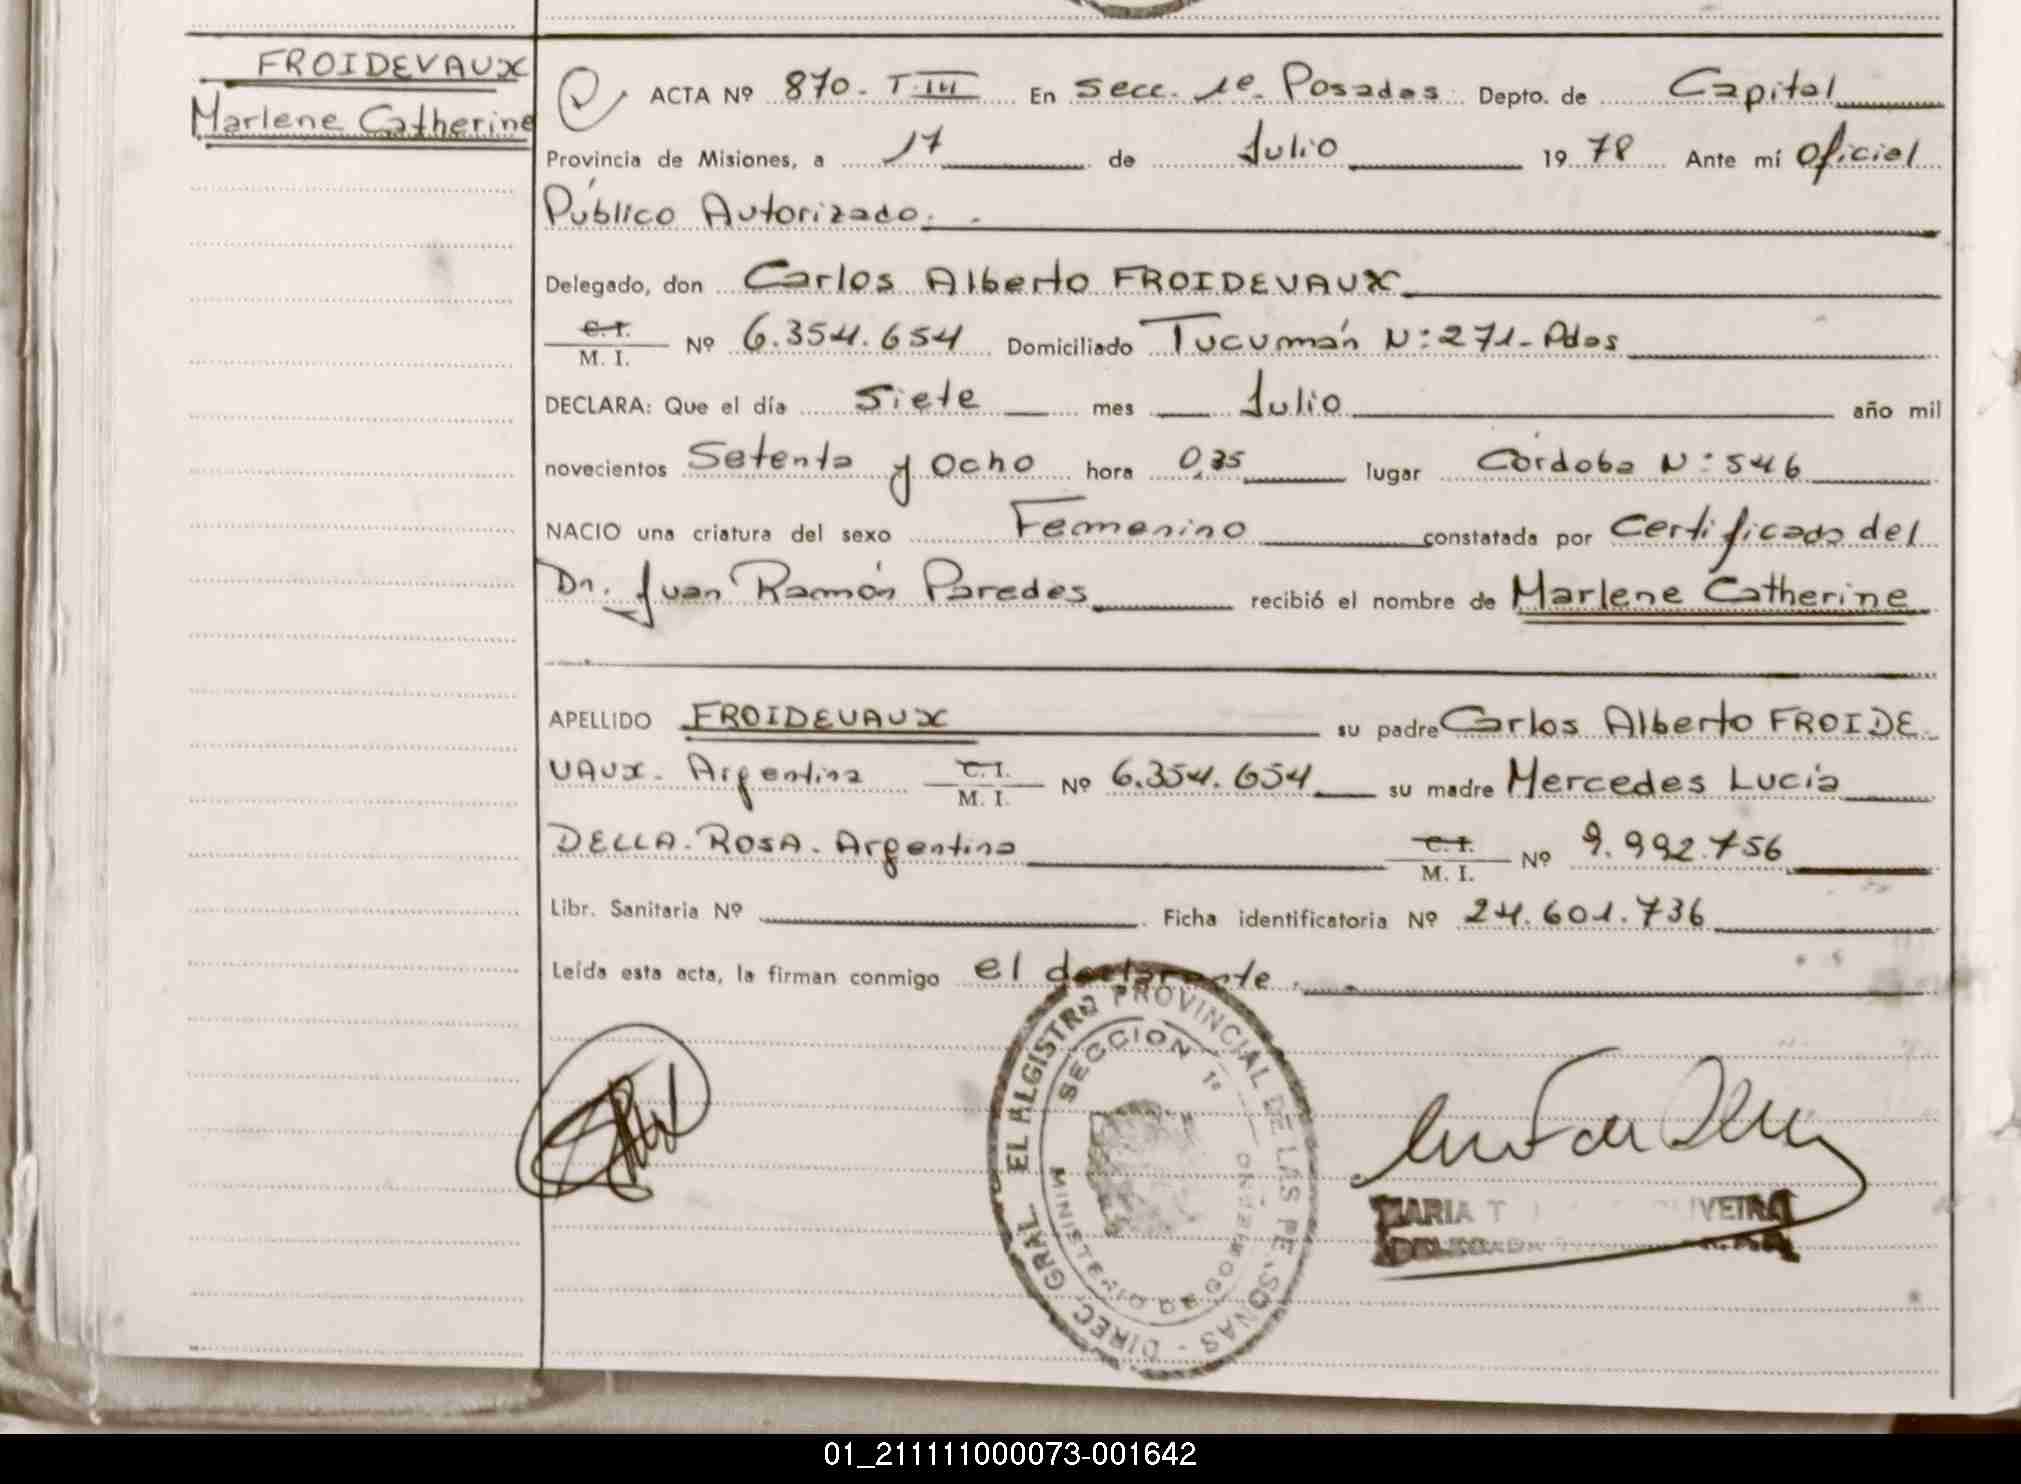 FROIDEVAUX
Marlene Catherine
ACTA Nº 870. T.III En Secc. 1º. Posadas Depto. de Capital
Provincia de Misiones, a 17 de Julio 1978 Ante mí Oficial
Público Autorizado.
Delegado, don Carlos Alberto FROIDEVAUX
C.I.
M. I. Nº 6.354.654 Domiciliado Tucumán N: 271- Pdas
DECLARA: Que el día Siete mes Julio año mil
novecientos Setenta y Ocho hora 0,35 lugar Córdoba N: 546
NACIO una criatura del sexo Femenino constatada por Certificado del
Dr. Juan Ramón Paredes recibió el nombre de Marlene Catherine
APELLIDO FROIDEVAUX su padre Carlos Alberto FROIDE
VAUX. Argentina C.I. M. I. Nº 6.354.654 su madre Mercedes Lucía
DELLA. ROSA. Argentina C.I. M. I. Nº 9.992.756
Libr. Sanitaria Nº Ficha identificatoria Nº 24.601.736
Leída esta acta, la firman conmigo el declarante.
DIREC. GRAL. PROVINCIAL DE LAS PERSONAS
SECCION 1º
MINISTERIO DE GOBIERNO
MARIA T OLIVEIRA
DELEGADA
01_211111000073-001642